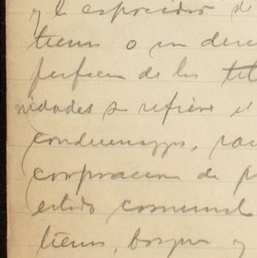 y la expresión de
tierras o un dere
perfeca de los tit
nidades se refiere el
condueñazgo,
corporación de p
estado comunal
tierras, bosques y